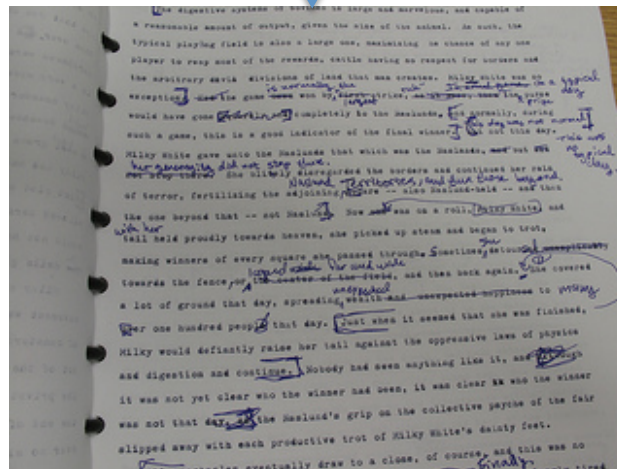 The digestive systems of bovines is large and marvelous, and capable of
a reasonable amount of output, given the size of the animal. As such, the
typical playing field is also a large one, maximizing chance of any one
player to reap most of the rewards, cattle having no respect for borders and
the arbitrary divisions of land that man creates. Milky White was no
is normally the on a typical day
exception the game won by first strike, then the purse
largest prize
would have gone completely to the Naslunds. And normally, during
such a game, this is a good indicator of the final winner. not this day.
this was no typical day.
Milky White gave unto the Naslunds that which was the Naslunds, but
her generosity did not stop there.
She blithely disregarded the borders and continued her rain
Naslund Territories, and then those beyond
of terror, fertilizing the adjoining square -- also Naslund-held -- and then
the one beyond that -- not Naslund. Now was on a roll. Milky White and
with her
tail held proudly towards heaven, she picked up steam and began to trot,
making winners of every square she passed through. Sometimes she detoured
far and wide
towards the fence, or the center of the field, and then back again. She covered
unexpected
a lot of ground that day, spreading wealth and unexpected happiness to many
over one hundred people that day. Just when it seemed that she was finished,
Milky would defiantly raise her tail against the oppressive laws of physics
and digestion and continue. Nobody had seen anything like it, and although
it was not yet clear who the winner had been, it was clear who the winner
was not that day, as the Naslund's grip on the collective psyche of the fair
slipped away with each productive trot of Milky White's dainty feet.
Finally,
eventually draw to a close, of course, and this was no